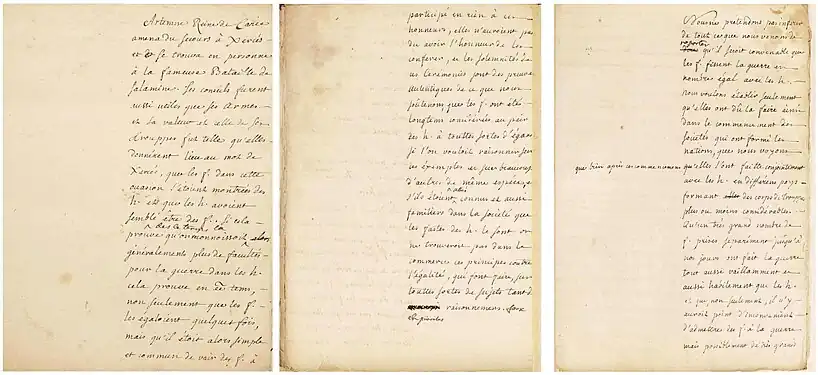 Artemise Reine de Carie
amena du secours à Xercès
et se trouva en personne
à la fameuse Bataille de
Salamine. Ses conseils furent
aussi utiles que ses Armes
et sa valeur et celle de ses
trouppes fut telle qu'elles
donnèrent lieu au mot de
Xercès, que les f. dans cette
occasion s'étoient montrées des
h. et que les h. avoient
semblé être des f. Si cela
dès le temps là
prouve qu'on reconnoissoit alors
généralement plus de facultés
pour la guerre dans les h.
cela prouve en même tems,
non seulement que les f.
les égaloient quelques fois,
mais qu'il étoit alors simple
et commun de voir des f. à
participé en rien à ces
honneurs, elles n'auroient pas
dû avoir l'honneur de les
conférer, et les solemnités de
ces Ceremonies sont des preuves
autentiques de ce que nous
soutenons, que les f. ont été
longtems considérées au pair
des h. à touttes sortes d'égards
si l'on vouloit raisonner sur
ces exemples et sur beaucoup
d'autres de même espèce
s'ils étoient connus et aussi
familiers dans la société que
les faites des h. le sont on
ne trouveroit pas dans le
commerce ces principes contre
l'égalité, qui font faire, sur
touttes sortes de sujets tant de
raisonnemens faux
Nous ne prétendons pas inférer
de tout ce que nous venons de
raporter
qu'il soit convenable que
les f. fissent la guerre en
nombre égal avec les h.
nous voulons établir seulement
qu'elles ont dû la faire ainsi
dans le commencement des
sociétés qui ont formé les
nations, que nous voyons
que bien après ces commencemens qu'elles l'ont faitte conjointement
avec les h. en différens pays
formant des corps de trouppes
plus ou moins considérables.
Qu'un très grand nombre de
f. prises séparément jusqu'à
nos jours ont fait la guerre
tout aussi vaillamment et
aussi habilement que les h.
et que non seulement, il n'y
auroit point d'inconvénient
d'admettre des f. à la guerre
mais possiblement de très grand